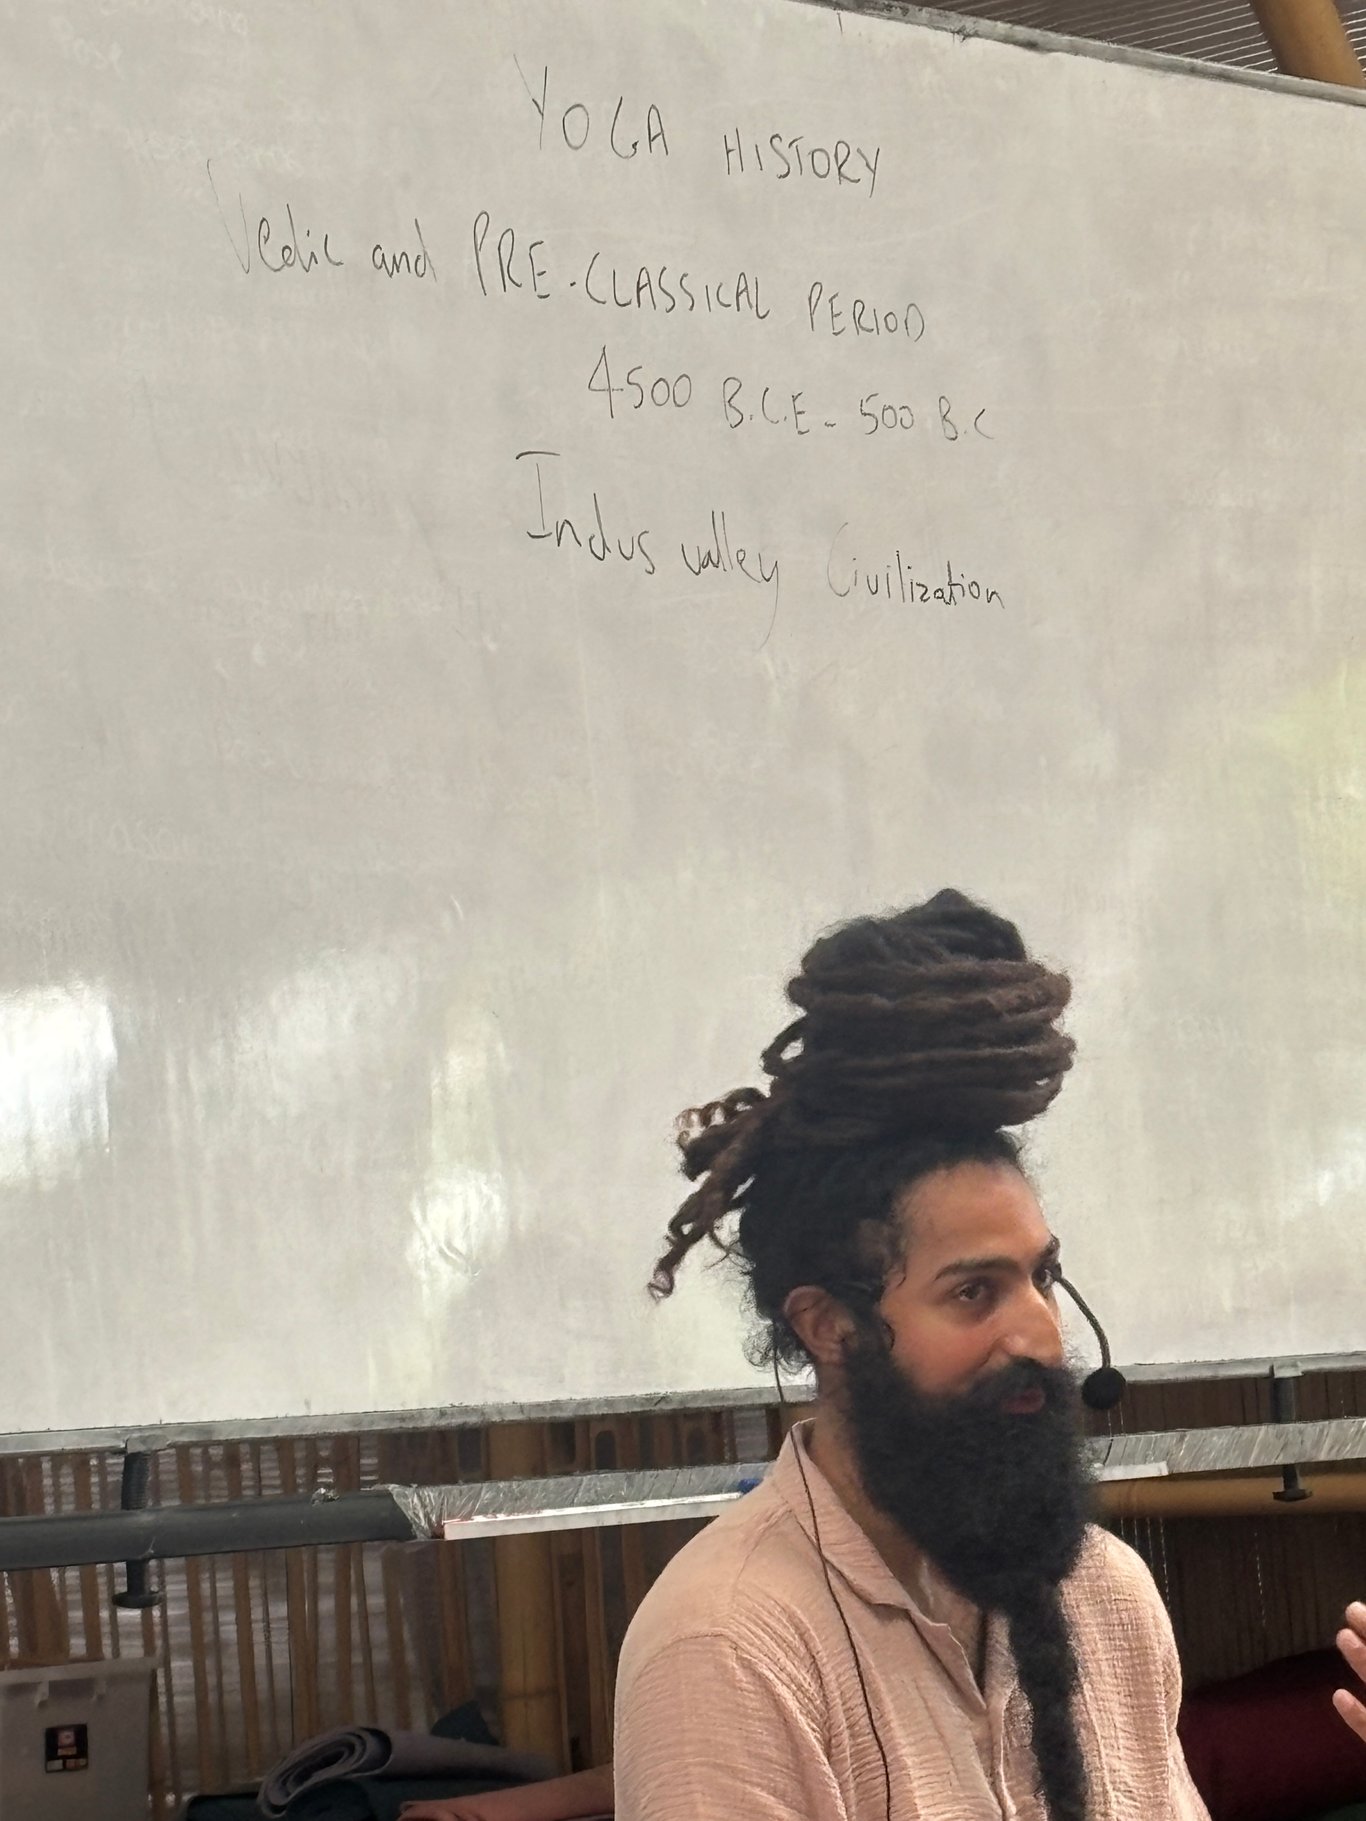 YOGA HISTORY
Vedic and PRE-CLASSICAL PERIOD
4500 B.C.E - 500 B.C
Indus valley Civilization